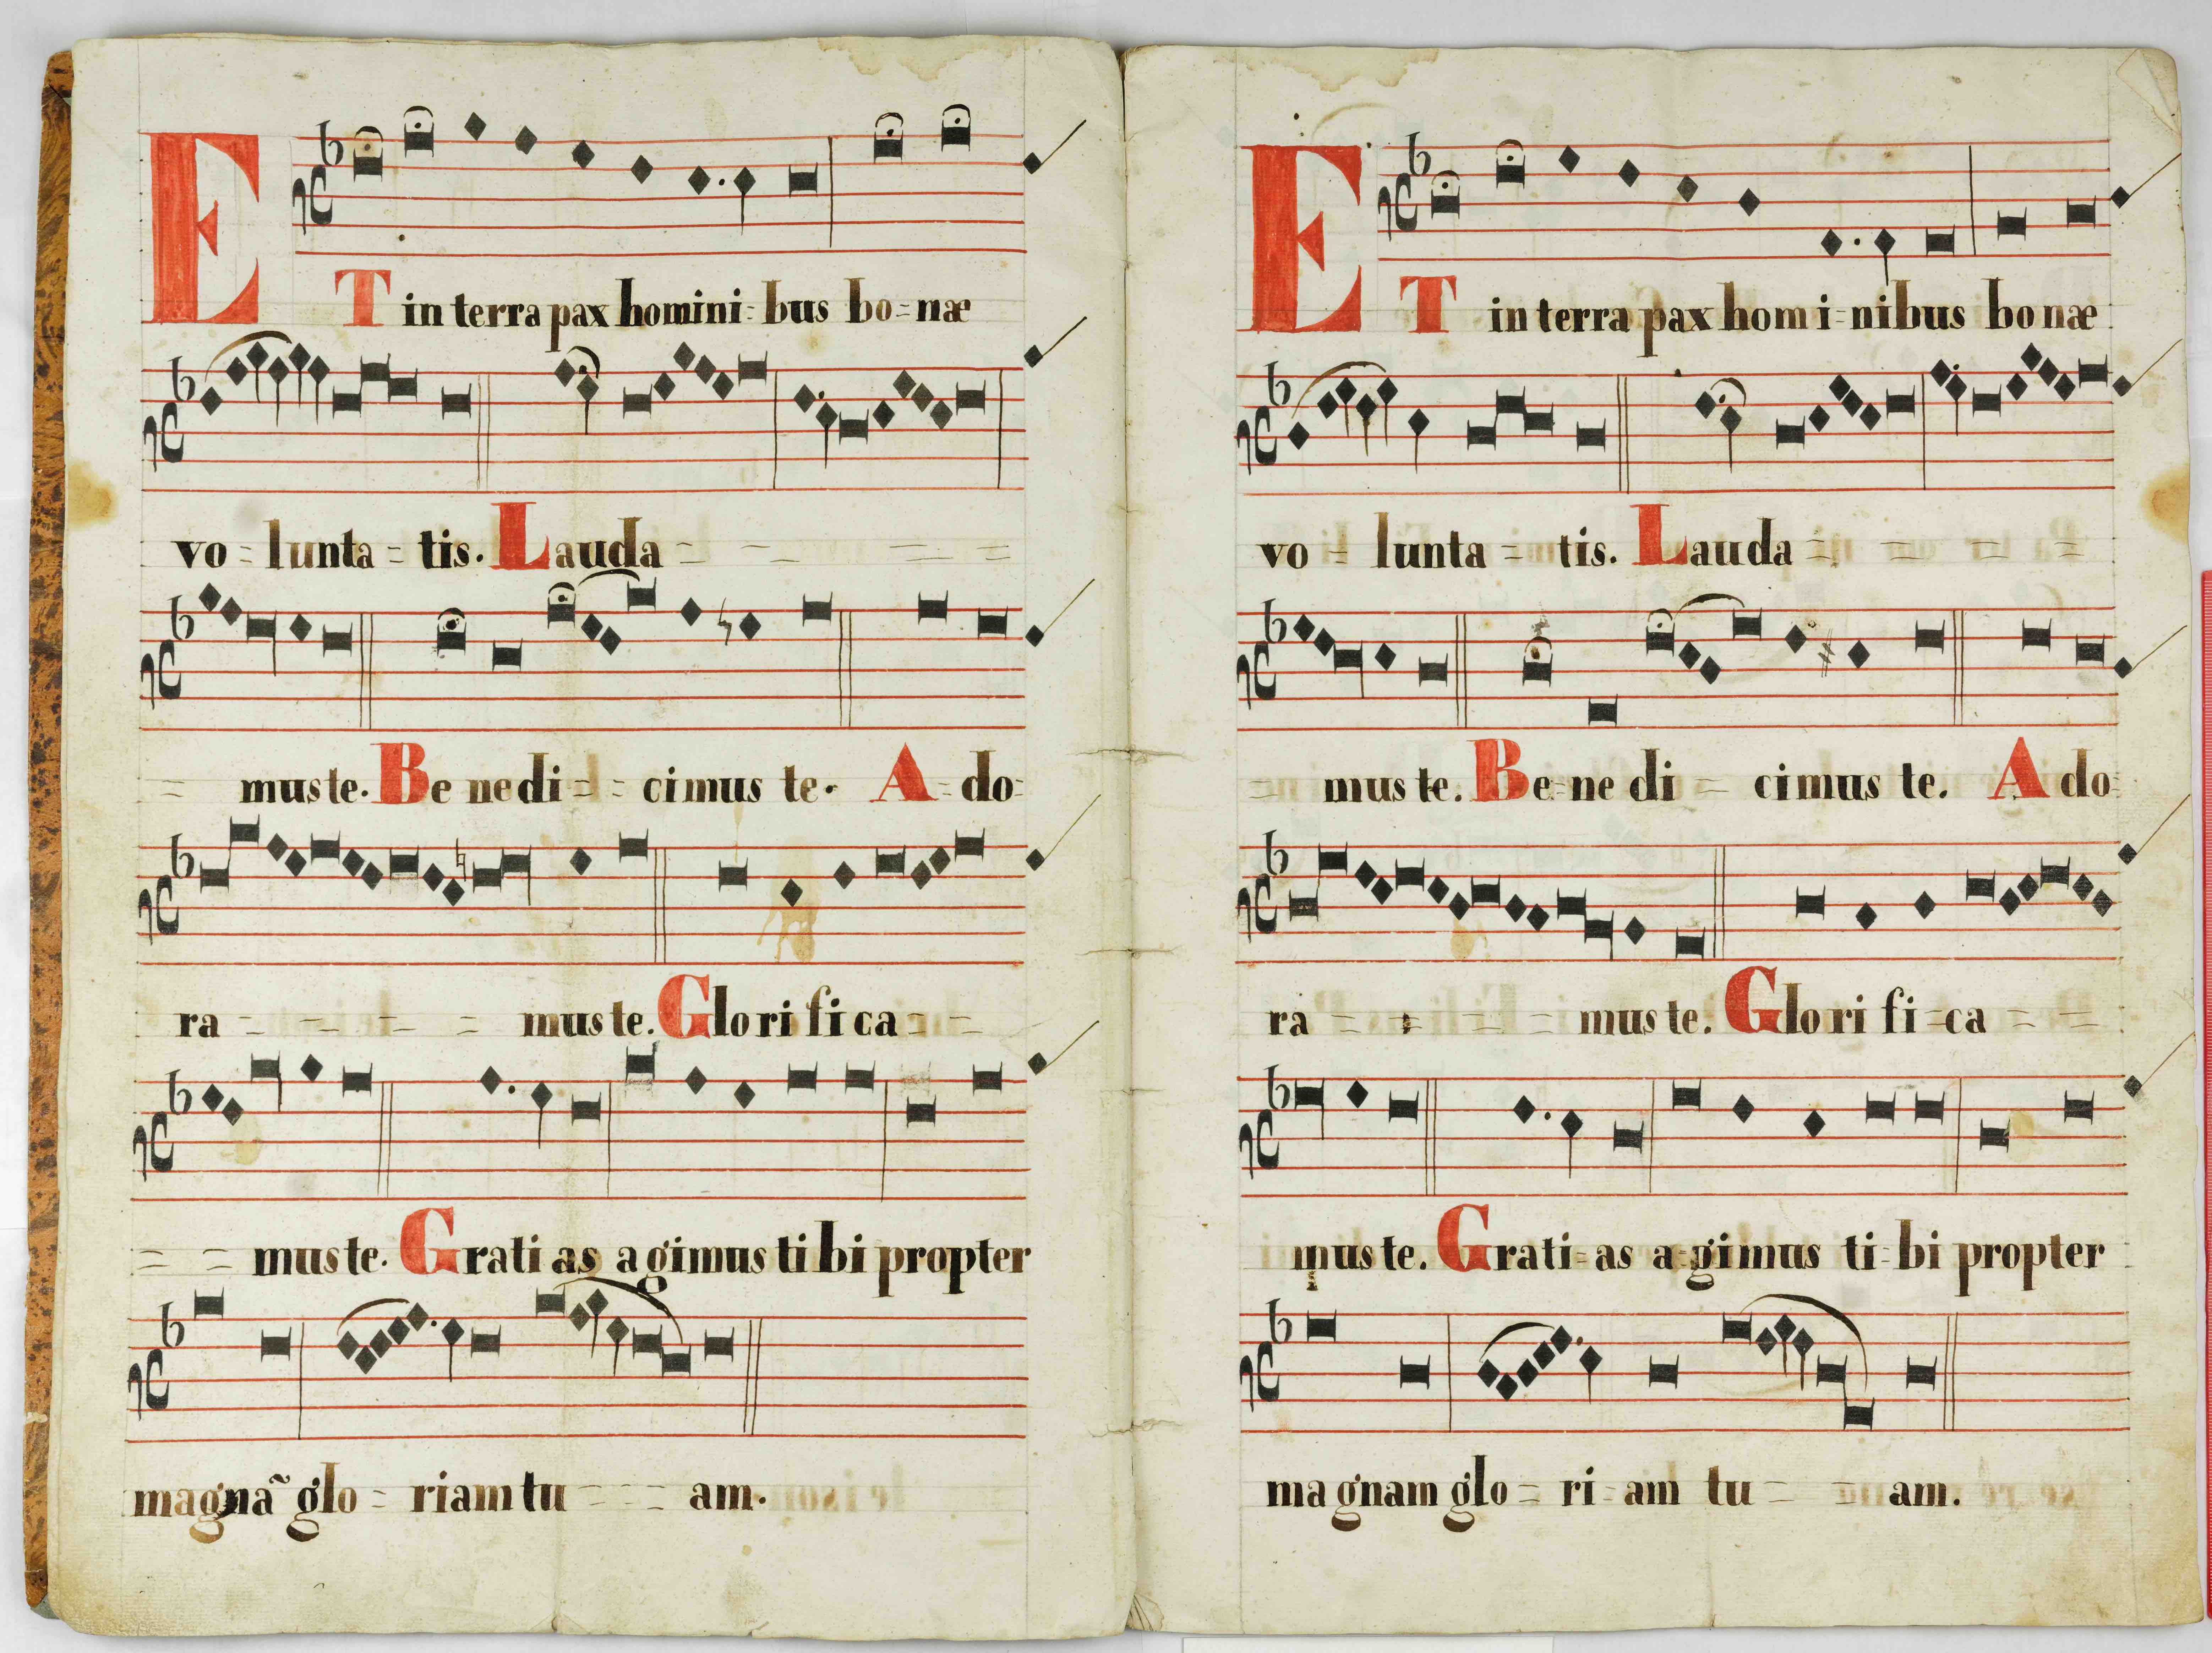 ET in terra pax homini=bus bo=næ
vo=lunta=tis. Lauda = = = =
= muste. Be nedi = = cimus te. A=do=
ra = = = = muste. Glorifica = =
= = muste. Grati as agimus tibi propter
magnã glo = riam tu = = = am.
ET in terra pax homi=nibus bonæ
vo = lunta = tis. Lauda = = = =
= mus te. Be=ne di = cimus te. A do=
ra = = = = = mus te. Glori fi=ca = =
mus te. Grati=as a=gimus ti=bi propter
magnam glo = ri=am tu = = am.